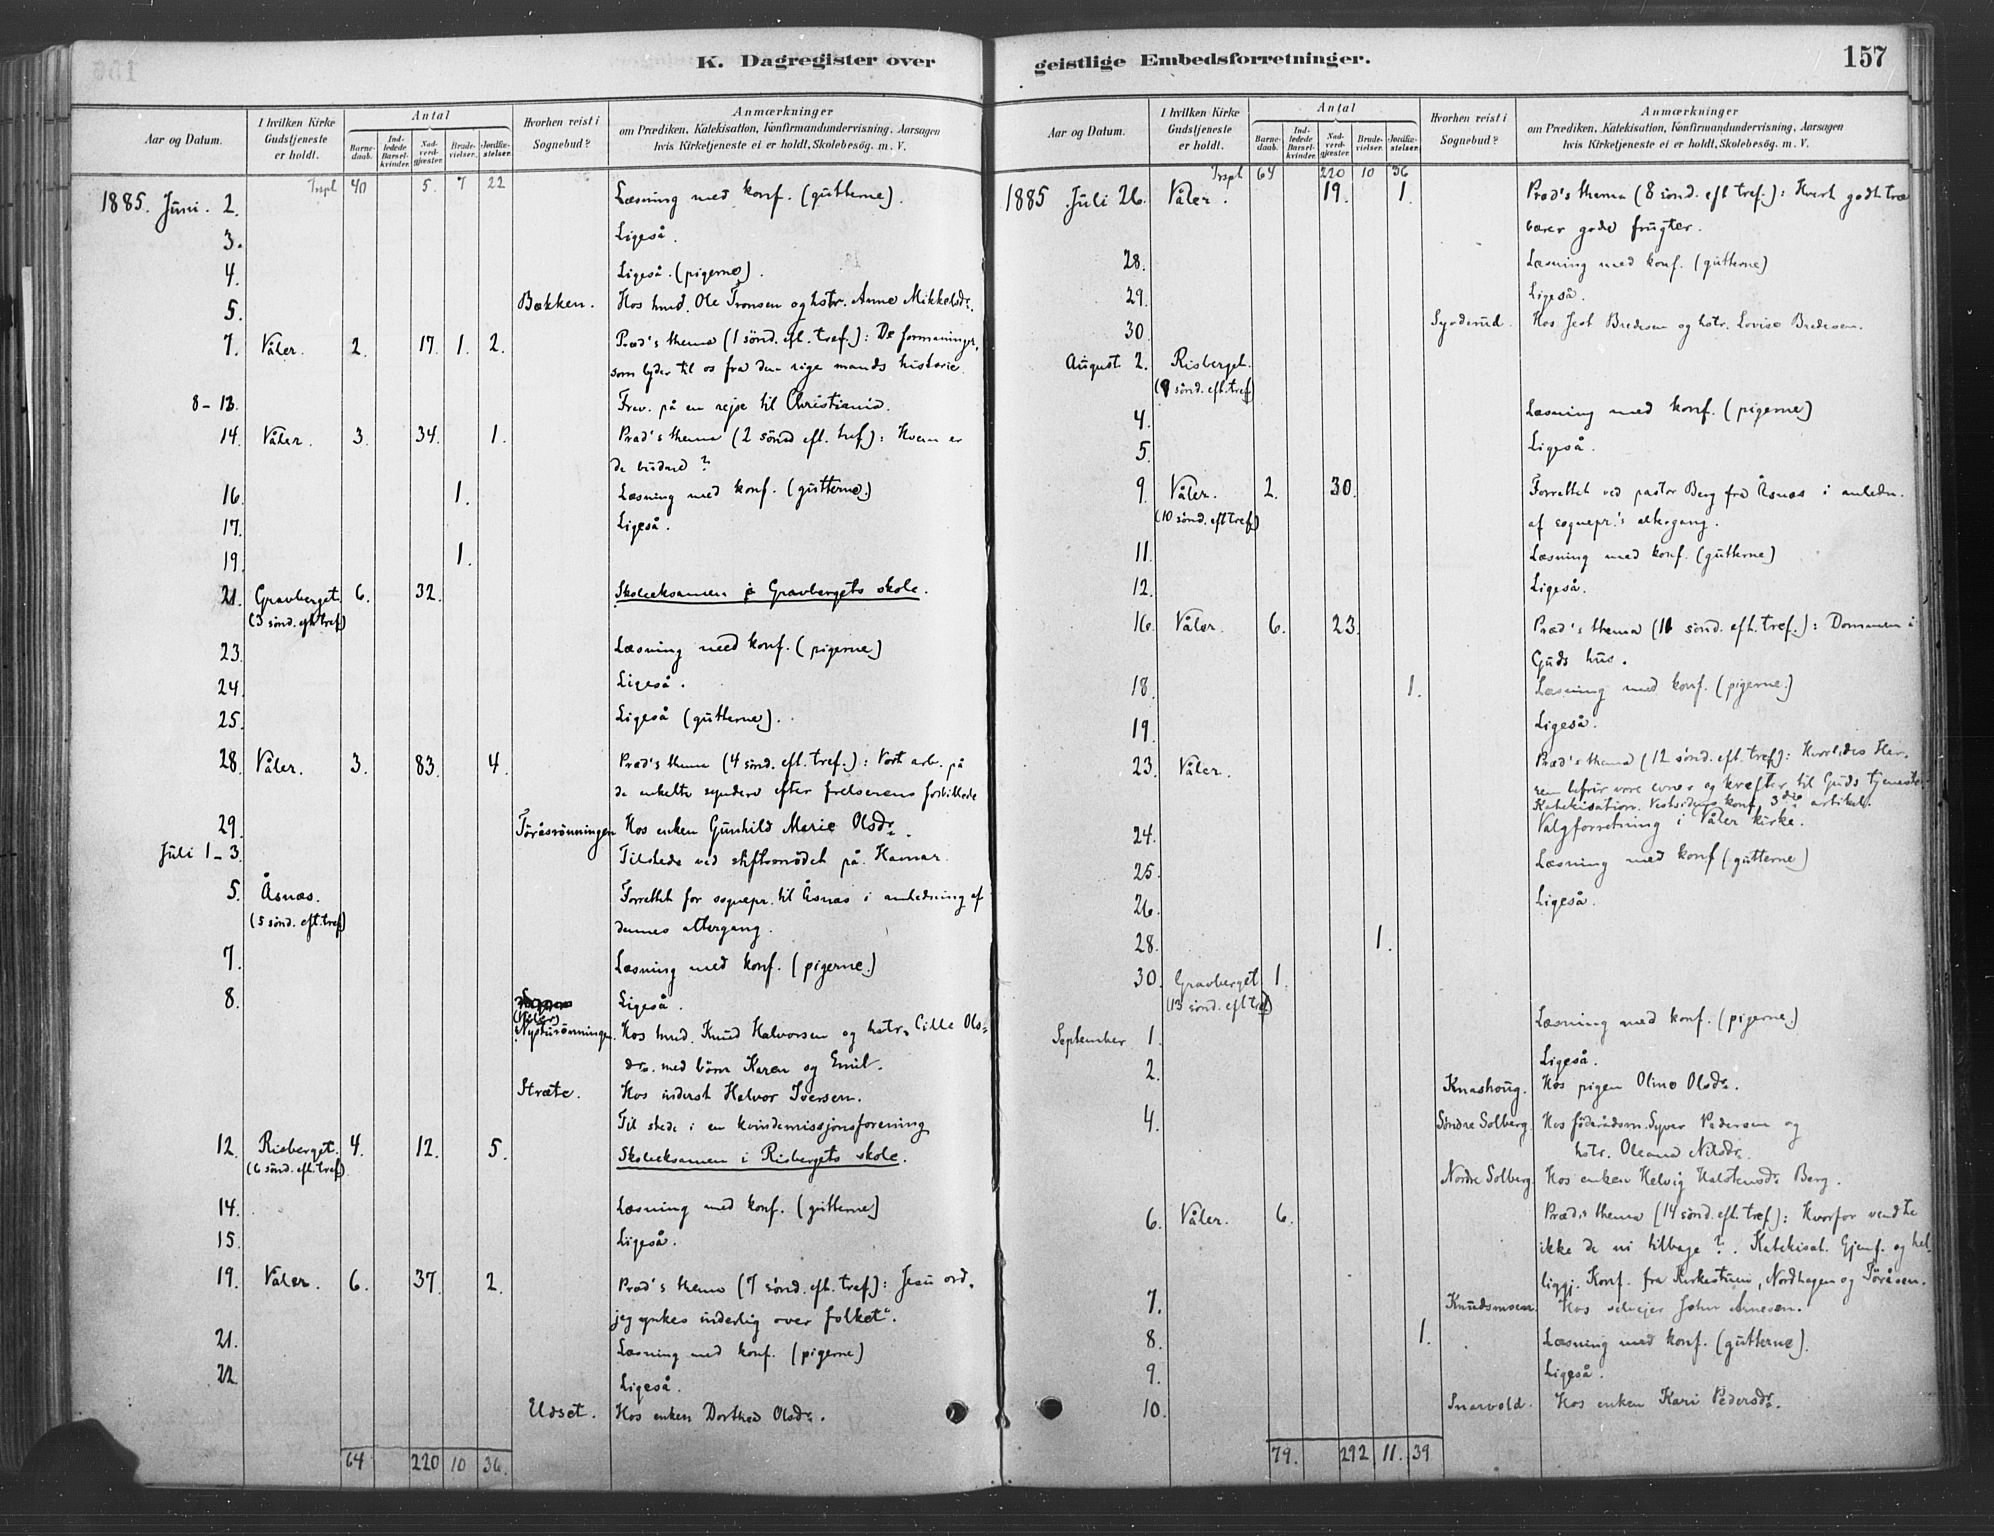 K. Dagregister over
Aar og Datum.
I hvilken Kirke Gudstjeneste er holdt.
Antal
Barnedaab.
Indledede Barselkvinder.
Nadverdgjæster.
Brudevielser.
Jordfæstelser.
Hvorhen reist i Sognebud?
Anmærkninger
om Prædiken, Katekisation, Konfirmandundervisning, Aarsagen
hvis Kirketjeneste ei er holdt, Skolebesøg. m. V.
Trspt 40 5. 7 22
1885. Juni. 2. Læsning med konf. (gutterne).
3. Ligeså.
4. Ligeså. (pigerne).
5. Bækken. Hos hmd. Ole Tronsen og hstr. Anne Mikkelsdr.
7. Våler. 2. 17. 1. 2. Præd's thema (1 sønd. eft. tref.): De formaninger,
som lyder til os fra den rige mands historie.
8-13. Frav. på en rejse til Christiania.
14. Våler. 3. 34. 1. Præd's thema (2 sønd eft. tref): Hvem er
de budne?
16. 1. Læsning med konf. (gutterne.)
17. Ligeså.
19. 1.
21. Gravberget. 6. 32. Skoleeksamen i Gravbergets skole.
(3 sønd. eft. tref)
23. Læsning med konf. (pigerne)
24. Ligeså.
25. Ligeså (gutterne).
28. Våler. 3. 83. 4. Præd's thema (4 sønd. eft. tref.): Vort arb. på
de enkelte syndere efter frelserens forbillede
29. Toråsrönningen Hos enken Gunhild Marie Olsdr.
Juli 1-3. Tilstede ved stiftsmødet på Hamar.
5. Åsnæs. Forrettet for sognepr. til Åsnæs i anledning af
(5 sønd. eft. tref) dennes altergang.
7. Læsning med konf. (pigerne.)
8. Ligeså.
(Våler)
Nyhusrönningen. Hos hmd. Knud Halvorsen og hstr. Cille Ols-
dr. med børn Karen og Emil.
Stræte. Hos inderst Helvor Iversen.
Til stede i en kvindemissjonsforening
12. Risberget. 4. 12. 5. Skoleeksamen i Risbergets skole.
(6 sønd. eft. tref)
14. Læsning med konf. (gutterne)
15. Ligeså.
19. Våler. 6. 37. 2. Præd's thema (7 sønd. eft. tref): Jesu ord,
jeg ynkes inderlig over folket".
21. Læsning med konf. (pigerne)
22. Ligeså.
Udset. Hos enken Dorthea Olsdr.
64 220 10 36.
geistlige Embedsforretninger.
157
Aar og Datum.
I hvilken Kirke Gudstjeneste er holdt.
Antal
Barnedaab.
Indledede Barselkvinder.
Nadverdgjæster.
Brudevielser.
Jordfæstelser.
Hvorhen reist i Sognebud?
Anmærkninger
om Prædiken, Katekisation, Konfirmandundervisning, Aarsagen
hvis Kirketjeneste ei er holdt, Skolebesøg. m. V.
Trspt 64 220 10 36
1885 Juli 26. Våler. 19. 1. Præd's thema (8 sønd. eft. tref.): Hvert godt træ
bærer gode frugter.
28. Læsning med konf. (gutterne)
29. Ligeså.
30. Hos Bredesen og hstr. Lovise Bredesen.
August 2. Risberget.
(9 sønd. eft. tref)
4. Læsning med konf. (pigerne)
5. Ligeså.
9. Våler. 2. 30. Forrettet ved pastor Berg fra Åsnæs i anledn.
(10 sønd. eft tref) af sognepr.'s altergang.
11. Læsning med konf. (gutterne)
12. Ligeså.
16. Våler. 6. 23. Præd's thema (11 sønd. eft. tref.): Dommen i
Guds hus.
18. 1. Læsning med konf. (pigerne.)
19. Ligeså.
23. Våler. Præd's thema (12 sønd. eft. tref): Hvorledes Her-
ren befrir vore evner og kræfter til Guds tjeneste.
Katekisation. Vestsidens konf. 3die artikel.
24. Valgforretning i Våler kirke.
25. Læsning med konf (gutterne)
26. Ligeså.
28. 1.
30. Gravberget 1.
(13 sønd. eft tref)
September 1. Læsning med konf. (pigerne.)
2. Ligeså.
Knashoug. Hos pigen Oline Olsdr.
4. Søndre Solberg. Hos föderådsm. Syver Pedersen og
hstr. Oleana Nilsdr.
Nordre Solberg. Hos enken Helvig Halstensdr. Berg.
6. Våler. 6. Præd's thema (14 sønd. eft. tref): Hvorfor vendte
ikke de ni tilbage? Katekisat. Gjenf. og hel-
liggj. Konf. fra Kirkestuen, Nordhagen og Toråsen.
7. Knudsmoen. Hos selvejer John Arnesen.
8. 1. Læsning med konf. (gutterne).
9. Ligeså.
10. Snarvold. Hos enken Kari Pedersdr.
79. 292 11. 39